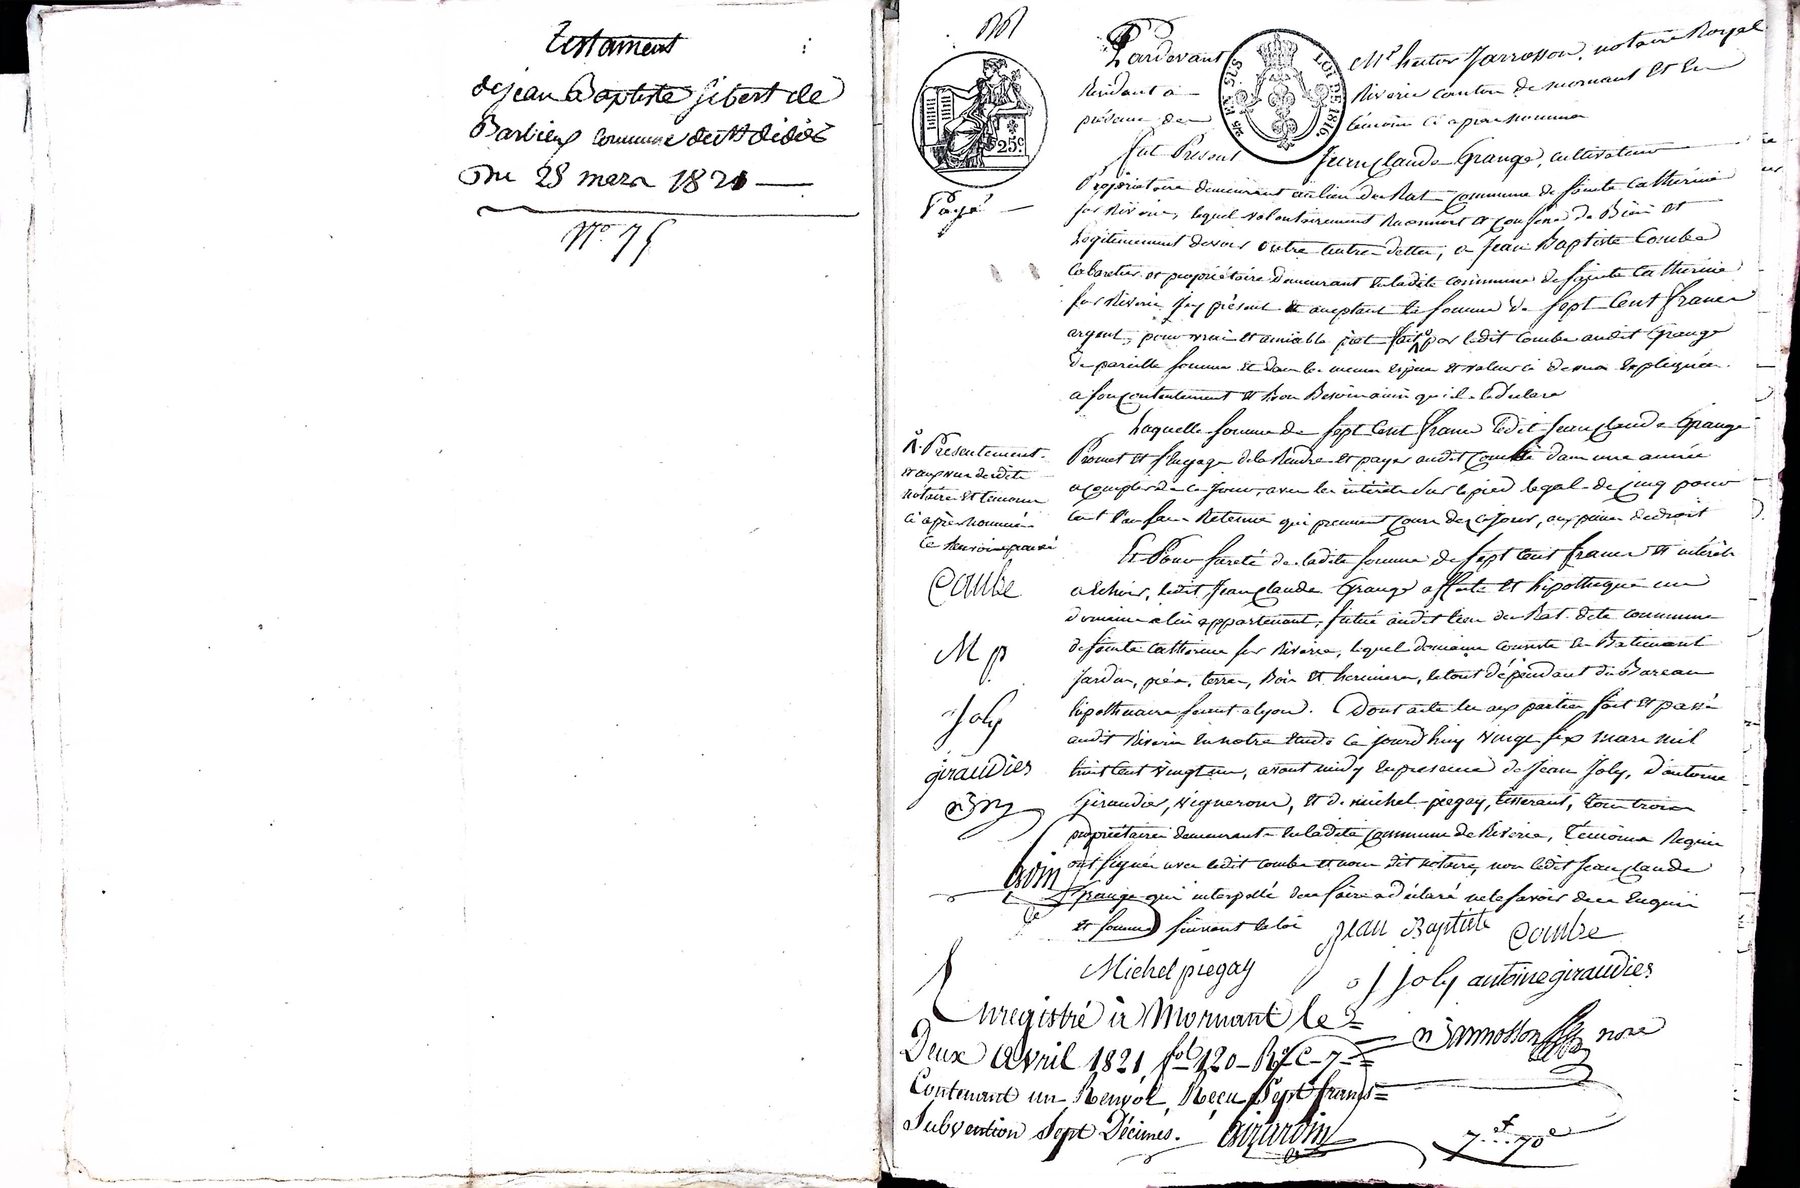 testament
de jean Baptiste jibert de
Barbieux commune de st didier
Du 25 mars 1821
N° 75
25 c
EN SUS
LOI DE 1816.
Payé
Pardevant Me hector Jarrosson, notaire Royal
Résidant à Riverie canton de mornant et en
présence des témoins ci après nommés
fut Présent Jean Claude Grange, cultivateur
Propriétaire demeurant au lieu du Rat commune de sainte Catherine
sur Riverie, lequel volontairement Reconnait et confesse de Bien et
Légitimement devoir outre autre dettes, a Jean Baptiste Combe
Cabaretier et propriétaire demeurant en ladite commune de sainte Catherine
sur Riverie icy présent et acceptant la somme de sept Cent francs
argent, pour vrai et amiable prêt fait par ledit Combe audit Grange
de pareille somme et dans les memes espèces et valeur ci dessus expliquées
a son contentement et Besoin ainsi qu'il le déclare
Laquelle somme de sept Cent francs ledit Jean Claude Grange
Promet et s'engage de la Rendre et payer audit Combe dans une année
a compter de ce jour, avec les intérêts sur le pied légal de cinq pour
Cent l'an sans Retenue qui prennent cours dez ce jour, aux peines de droit
Présentement
et aux vue desdits
notaire et témoins
ci après nommés
Ce Renvoi approuvé
Combe
M p
Joly
giraudier
Et Pour sureté de ladite somme de sept cent francs et intérêts
a échoir, ledit Jean Claude Grange affecte et hipothèque un
domaine a lui appartenant, situé audit lieu du Rat dite commune
de sainte Catherine sur Riverie, lequel domaine consiste en Batiment
Jardin, prés, terres, Bois et hermières, le tout dépendant du Bureau
hipothécaire séant a lyon. Dont acte lu aux parties fait et passé
audit Riverie en notre étude ce jourd'huy vingt six mars mil
huit cent vingt un, avant midy en présence de Jean Joly, d'antoine
Giraudier, vignerons, et de michel piegay, tisserant, tous trois
propriétaires demeurants en ladite commune de Riverie, témoins Requis
ont signés avec ledit combe et nous dit notaire, non ledit Jean Claude
Grange qui interpellé de ce faire a déclaré ne le savoir de ce enquis
et sommé suivant la loi Jean Baptiste Combe
Michel piegay J Joly antoine giraudier
Enregistré à Mornant le
Deux avril 1821, fol 120 Ro C 7
Contenant un Renvoi, Reçu Sept francs
Subvention Sept Décimes. Girardin
Jarrosson nore
7 f 70 c